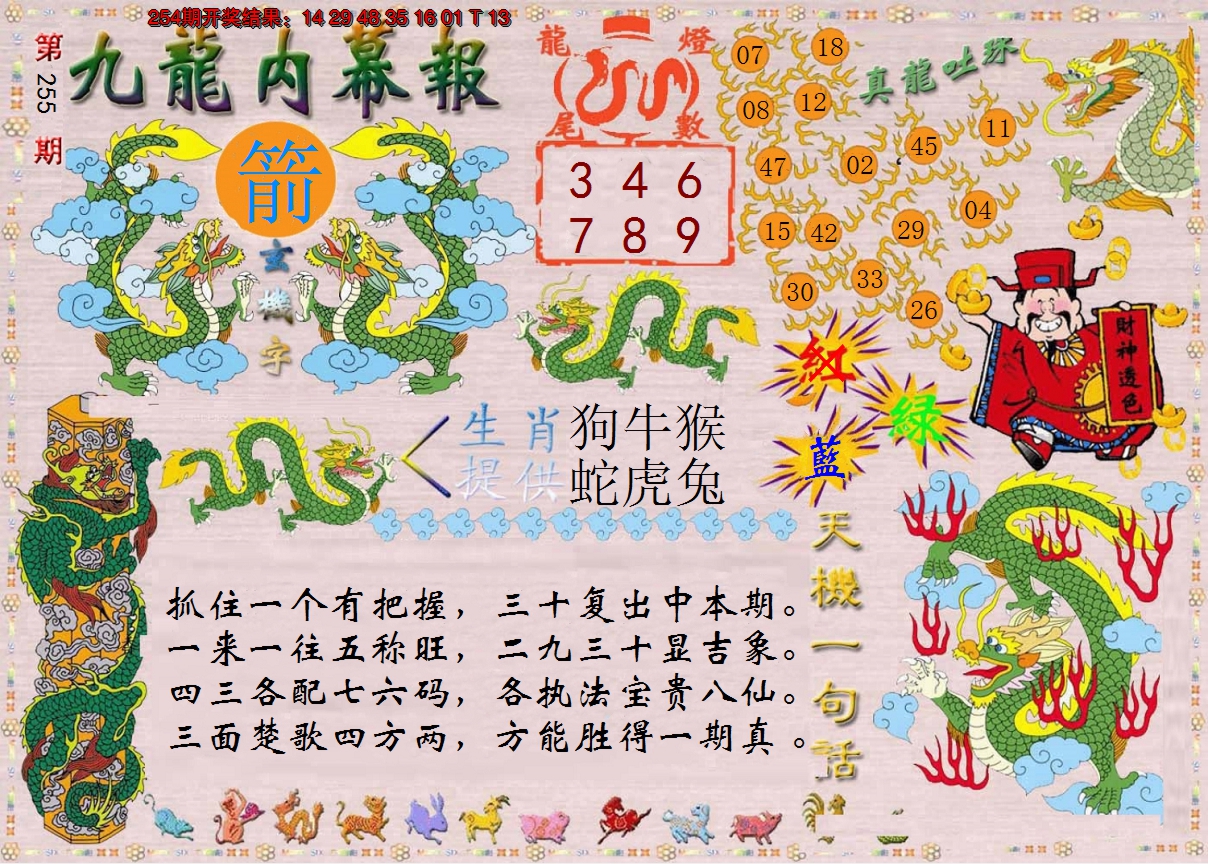 254期开奖结果：14 29 48 35 16 01 T 13
第255期
九龍内幕報
箭
玄機字
龍燈
尾數
3 4 6
7 8 9
真龍吐珠
07 18
08 12
47 02 45 11
15 42 29 04
30 33 26
紅
綠
藍
財神透色
生肖提供
狗牛猴
蛇虎兔
天機一句話
抓住一个有把握，三十复出中本期。
一来一往五称旺，二九三十显吉象。
四三各配七六码，各执法宝贵八仙。
三面楚歌四方两，方能胜得一期真。